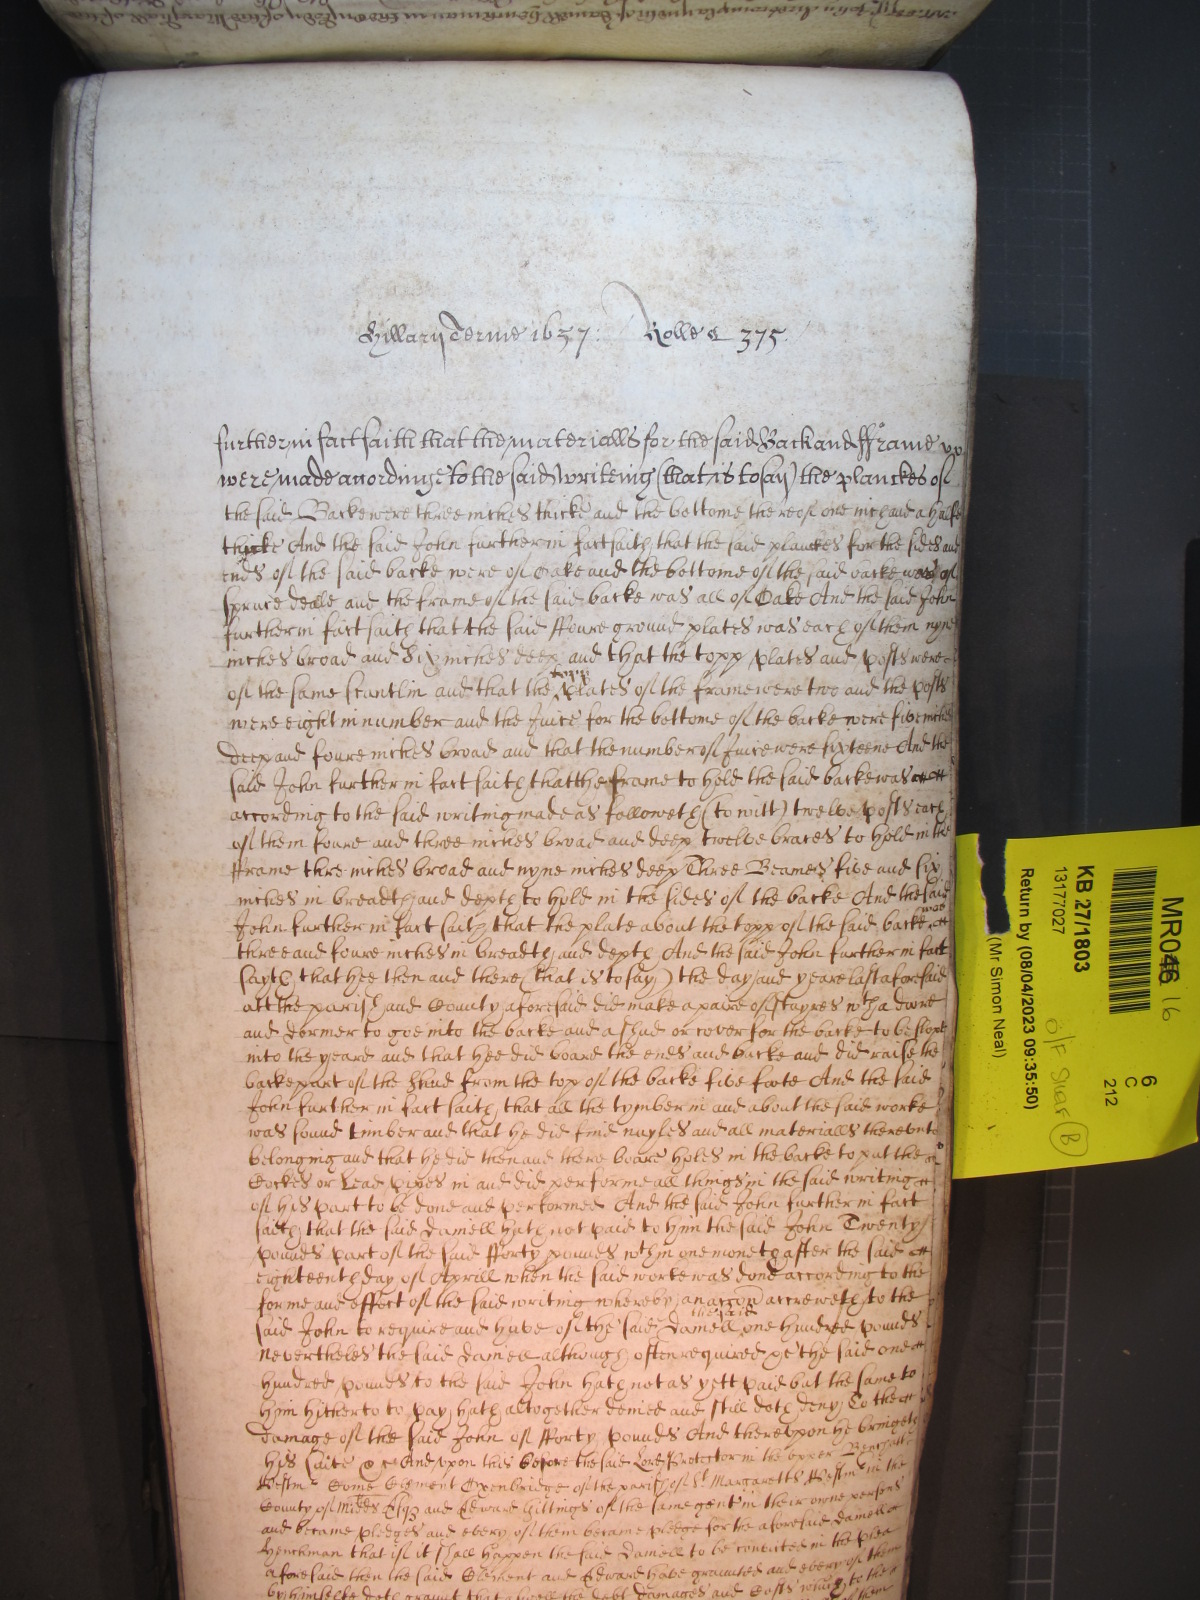 Hillary Terme 1657. Rolle 375.
further in fact saith that the materialls for the said Back and fframe
were made acordinge to the said writeing (that is to say) the planckes of
the said Backe were three inches thicke and the bottome thereof one inch and a halfe
thicke And the said John further in fact saith that the said planckes for the sides and
ends of the said backe were of Oake and the bottome of the said backe was of
spruce deale and the frame of the said backe was all of Oake And the said John
further in fact saith that the said ffoure ground plates was each of them nyne
inches broad and Six inches deep and that the topp plates and posts were
of the same scantlin and that the topp plates of the frame were two and the posts
were eight in number and the Juice for the bottome of the backe were five inches
deep and foure inches broad and that the number of Juice were sixteene And the
said John further in fact saith that the frame to hold the said backe was
according to the said writing made as followeth (to witt) twelve posts each
of them foure and three inches broad and deep twelve braces to hold in the
fframe thre inches broad and nyne inches deep Three Beames five and six
inches in breadth and depth to hold in the sides of the backe And the said
John further in fact saith that the plate about the topp of the said backe was
three and foure inches in breadth and depth And the said John further in fact
sayth that hee then and there (that is to say) the day and yeare last aforesaid
att the parish and County aforesaid did make a paire of stayres with a dore
and dormer to goe into the backe and a shud or cover for the backe to be slopt
into the yeard and that hee did board the ends and backe and did raise the
backe part of the shud from the top of the backe five foote And the said
John further in fact saith that all the tymber in and about the said worke
was sound timber and that he did find nayles and all materialls thereunto
belonging and that he did then and there boare holes in the backe to put the
Cockes or Lead pipes in and did performe all things in the said writing
of his part to be done and performed And the said John further in fact
saith that the said Daniell hath not paid to him the said John Twenty
pounds part of the said fforty pounds within one moneth after the said
eighteenth day of Aprill when the said worke was done according to the
forme and effect of the said writing whereby an accon accreweth to the
said John to require and have of the said Daniell the said one hundred pounds
nevertheles the said Daniell although often required &c the said one
hundred pounds to the said John hath not as yett paid but the same to
him hitherto to pay hath altogether denied and still doth deny To the
damage of the said John of fforty pounds And thereupon he bringeth
his suite &c And upon this before the said Lord Protector in the upper Bench att
Westm Come Clement Oxenbridge of the parish of St Margaretts Westm in the
County of Midds Esq and Edward Gittings of the same gent in their owne persons
and became pledges and every of them became pledge for the aforesaid Daniell
Henchman that if it shall happen the said Daniell to be convicted in the plea
aforesaid then the said Clement and Edward have graunted and every of them
by himselfe doth graunt that aswell the debt damages and Costs to the
MR046 16
KB 27/1803
13177027
Return by (08/04/2023 09:35:50)
(Mr Simon Neal)
6
C
212
B